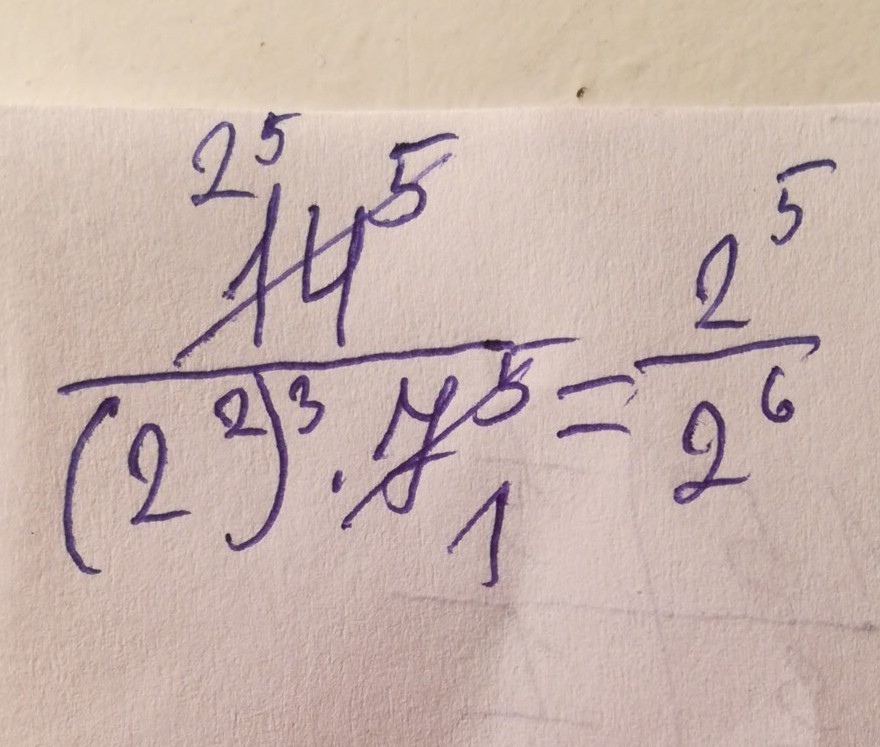 2⁵
14⁵
(2²)³ · 7⁵ = 2⁵
1
2⁶